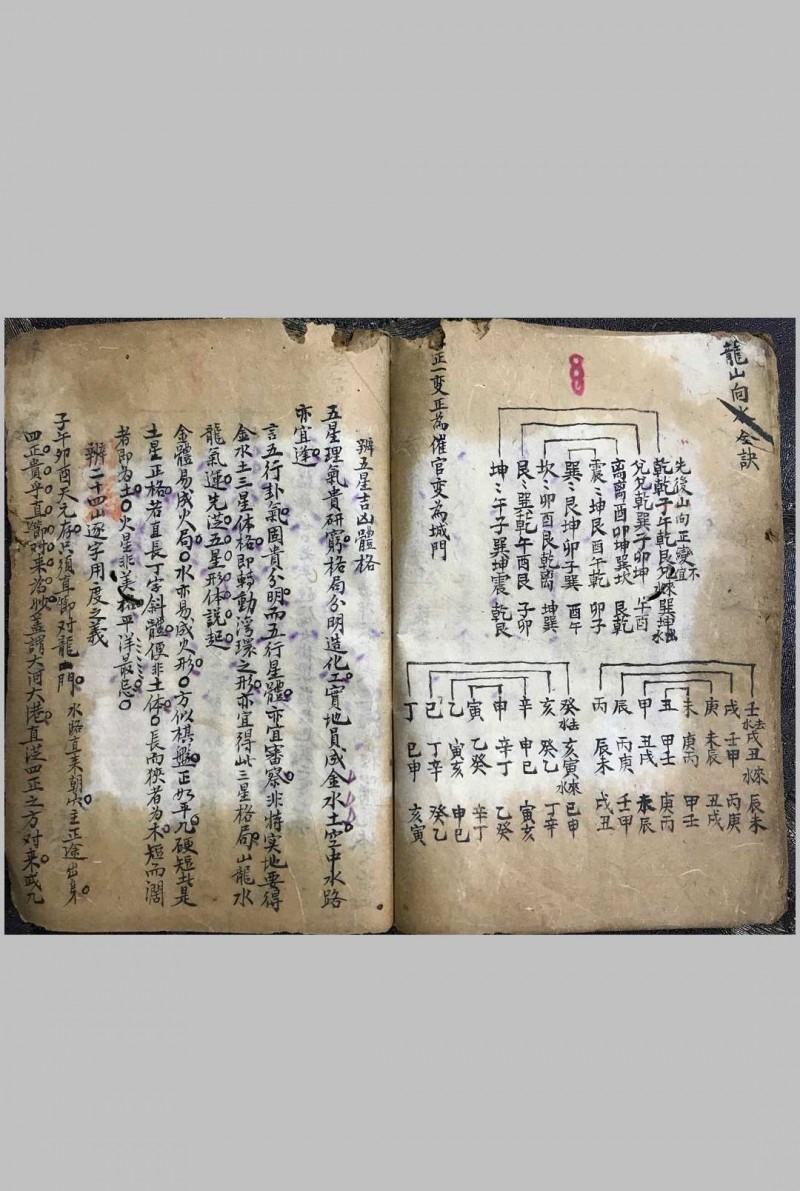 龍山向水全訣
先後山向正變宜不
乾乾子午乾艮兌來巽坤出水
兌兌乾巽子卯坤 午酉
离離酉卯坤巽坎 艮乾
震〻坤艮酉午乾 卯子
巽〻艮坤卯子巽 酉午
坎〻卯酉艮乾離 坤巽
艮〻巽乾午酉艮 子卯
坤〻午子巽坤震 乾艮
正一变正為催官变為城門
壬水去戌丑水來辰未
戌壬甲丙庚
庚未辰丑戌
未庚丙甲壬
丑甲壬庚丙
甲丑戌未辰
辰丙庚壬甲
丙辰未戌丑
癸水去亥寅水來巳申
亥癸乙丁辛
辛申巳寅亥
申辛丁乙癸
寅乙癸辛丁
乙寅亥申巳
巳丁辛癸乙
丁巳申亥寅
辨五星吉凶體格
五星理氣貴研窮格局分明造化工實地員成金水土空中水路
亦宜逢
言五行卦氣固貴分明而五行星體亦宜審察非特实地要得
金水土三星体格即轉動湾環之形亦宜得此三星格局山龍水
龍氣運先泛五星形体説起
金體易成火局水亦易成火形方似棋盤正如平几硬短此是
土星正格若直長丁字斜體便非土体長而狹者为木短而濶
者即為土火星非美格平洋最忌
辨二十四山逐字用度之義
子午卯酉天元存只須直節对龍門 水路直来朝穴主正途出身
四正貴乎直節对来洽妙盖謂大河大港直泛四正之方对来或九